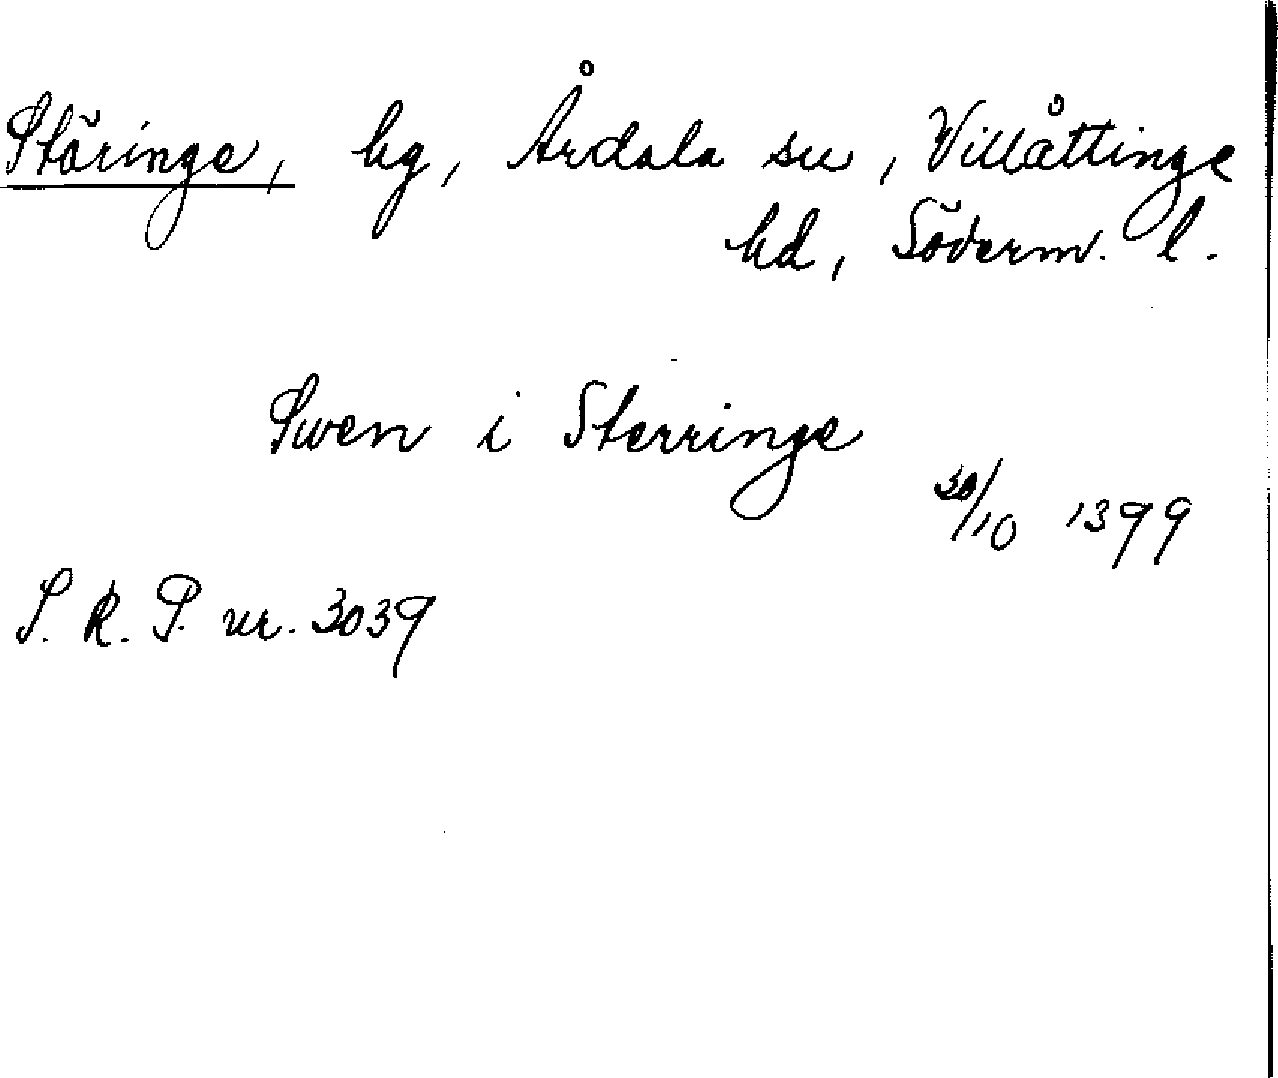 Stäringe, hg, Årdala sn, Villåttinge
hd, Söderm. l.
Swen i Sterringe
30/10 1399
S. R. P. nr. 3039